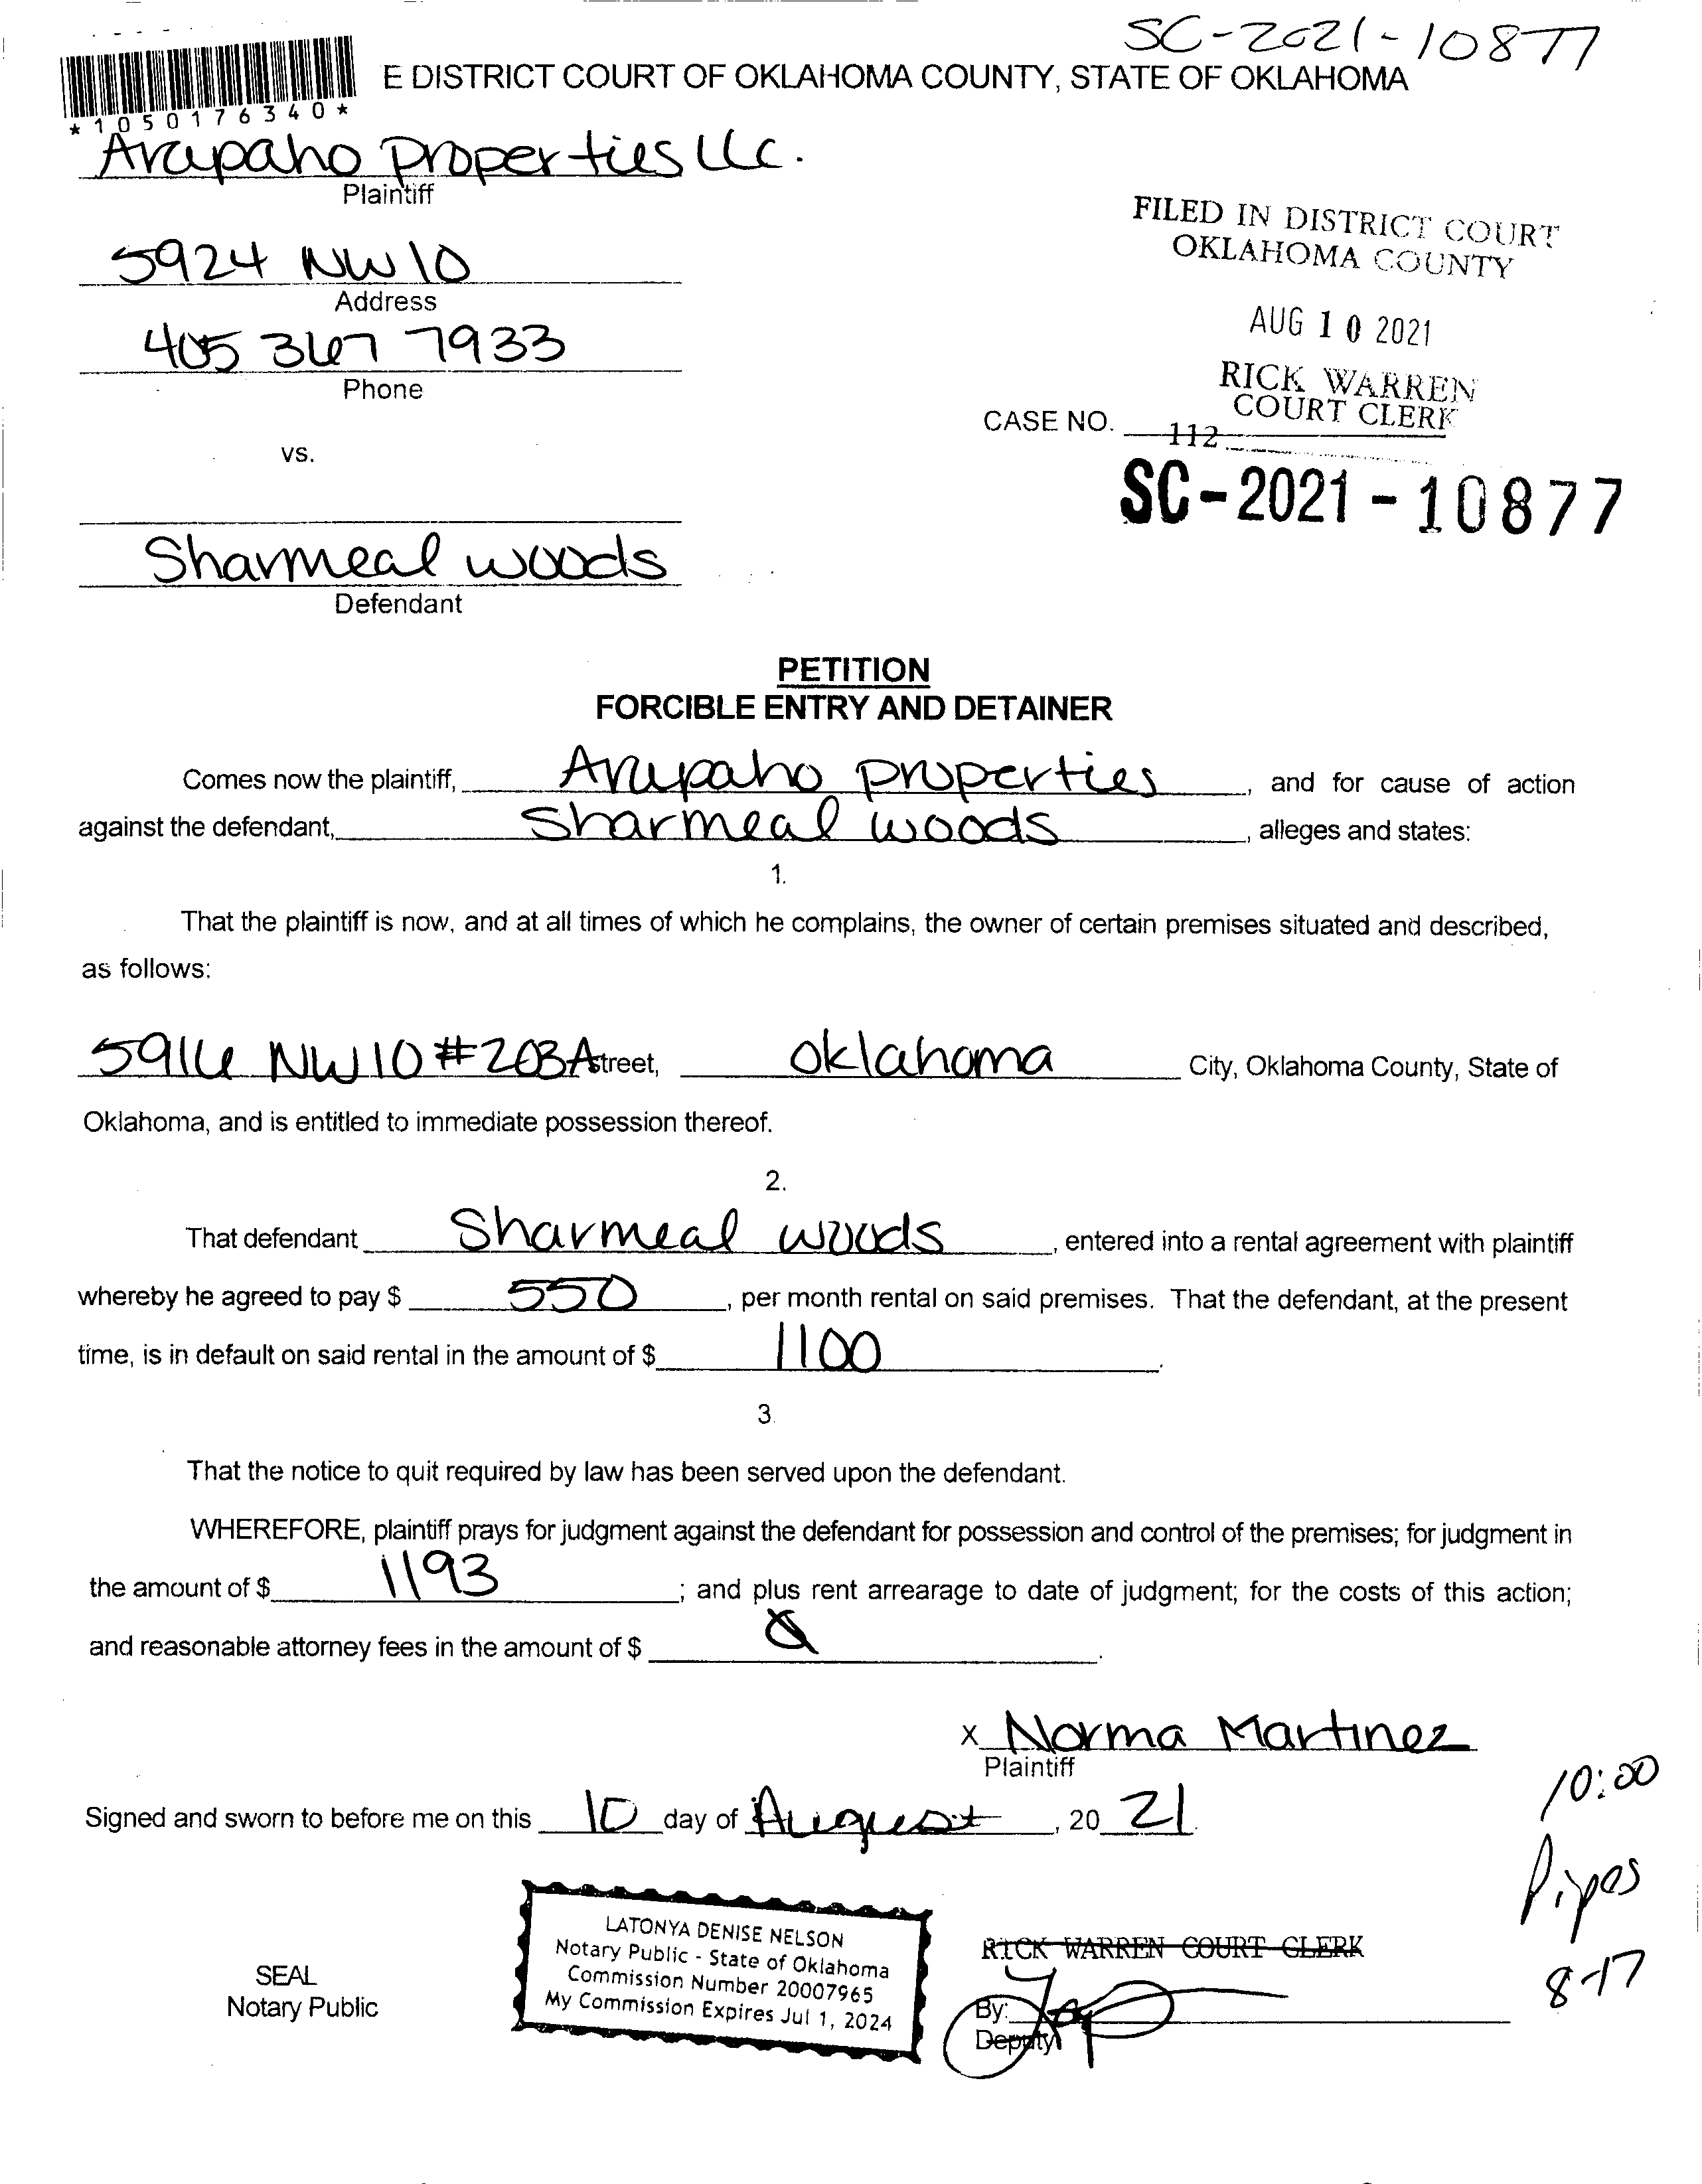 SC-2021-10877
E DISTRICT COURT OF OKLAHOMA COUNTY, STATE OF OKLAHOMA
*1050176340*
Arapaho properties LLC.
Plaintiff
FILED IN DISTRICT COURT
OKLAHOMA COUNTY
5924 NW 10
Address
AUG 10 2021
405 367 7933
Phone
RICK WARREN
COURT CLERK
CASE NO.
112
vs.
SC-2021-10877
Sharmeal woods
Defendant
PETITION
FORCIBLE ENTRY AND DETAINER
Comes now the plaintiff, Arapaho properties, and for cause of action
against the defendant, Sharmeal woods, alleges and states:
1.
That the plaintiff is now, and at all times of which he complains, the owner of certain premises situated and described,
as follows:
5916 NW 10 #203A Street, Oklahoma City, Oklahoma County, State of
Oklahoma, and is entitled to immediate possession thereof.
2.
That defendant Sharmeal woods, entered into a rental agreement with plaintiff
whereby he agreed to pay $ 550, per month rental on said premises. That the defendant, at the present
time, is in default on said rental in the amount of $ 1100.
3.
That the notice to quit required by law has been served upon the defendant.
WHEREFORE, plaintiff prays for judgment against the defendant for possession and control of the premises; for judgment in
the amount of $ 1193; and plus rent arrearage to date of judgment; for the costs of this action;
and reasonable attorney fees in the amount of $ .
X Norma Martinez
Plaintiff
10:00
Signed and sworn to before me on this 10 day of August, 20 21.
Pipes
8-17
LATONYA DENISE NELSON
Notary Public - State of Oklahoma
Commission Number 20007965
My Commission Expires Jul 1, 2024
RICK WARREN COURT CLERK
SEAL
Notary Public
By:
Deputy